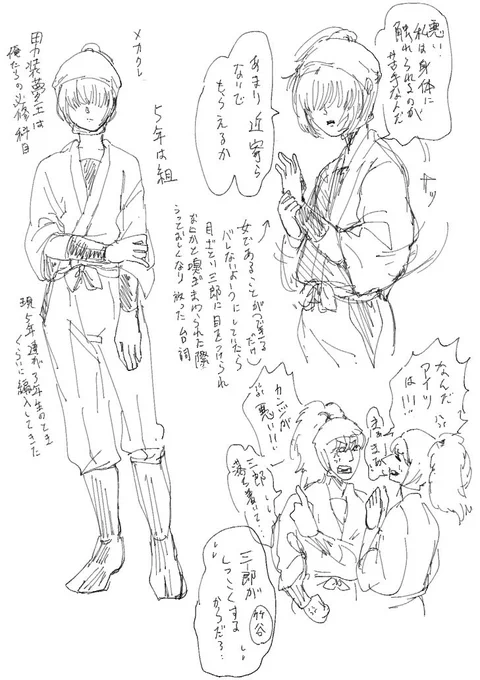 悪い
私は身体に
触れられるのが
苦手なんだ
あまり近寄ら
ないで
もらえるか
メカクレ
男装夢主は
俺たちの必修科目
5年は組
現5年達が3年生のとき
くらいに編入してきた
女であることが
バレないよーにしていたら
目ざとい三郎に目をつけられ
なにかと嗅ぎまわられた際
うっとおしくなり放った台詞
なんだ
アイツ
は!!!
カンジが
悪い!!!
まぁまぁ
三郎
落ち着いて…
三郎が
しつこくする
からだろ…
竹谷